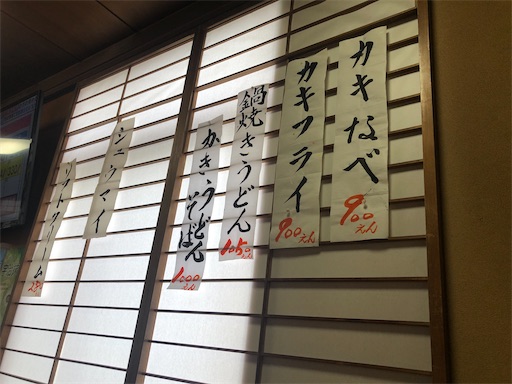 カキなべ
900えん
カキフライ
900えん
鍋焼きうどん
1050えん
かきうどん
そば
1000えん
シュウマイ
ソフトクリーム